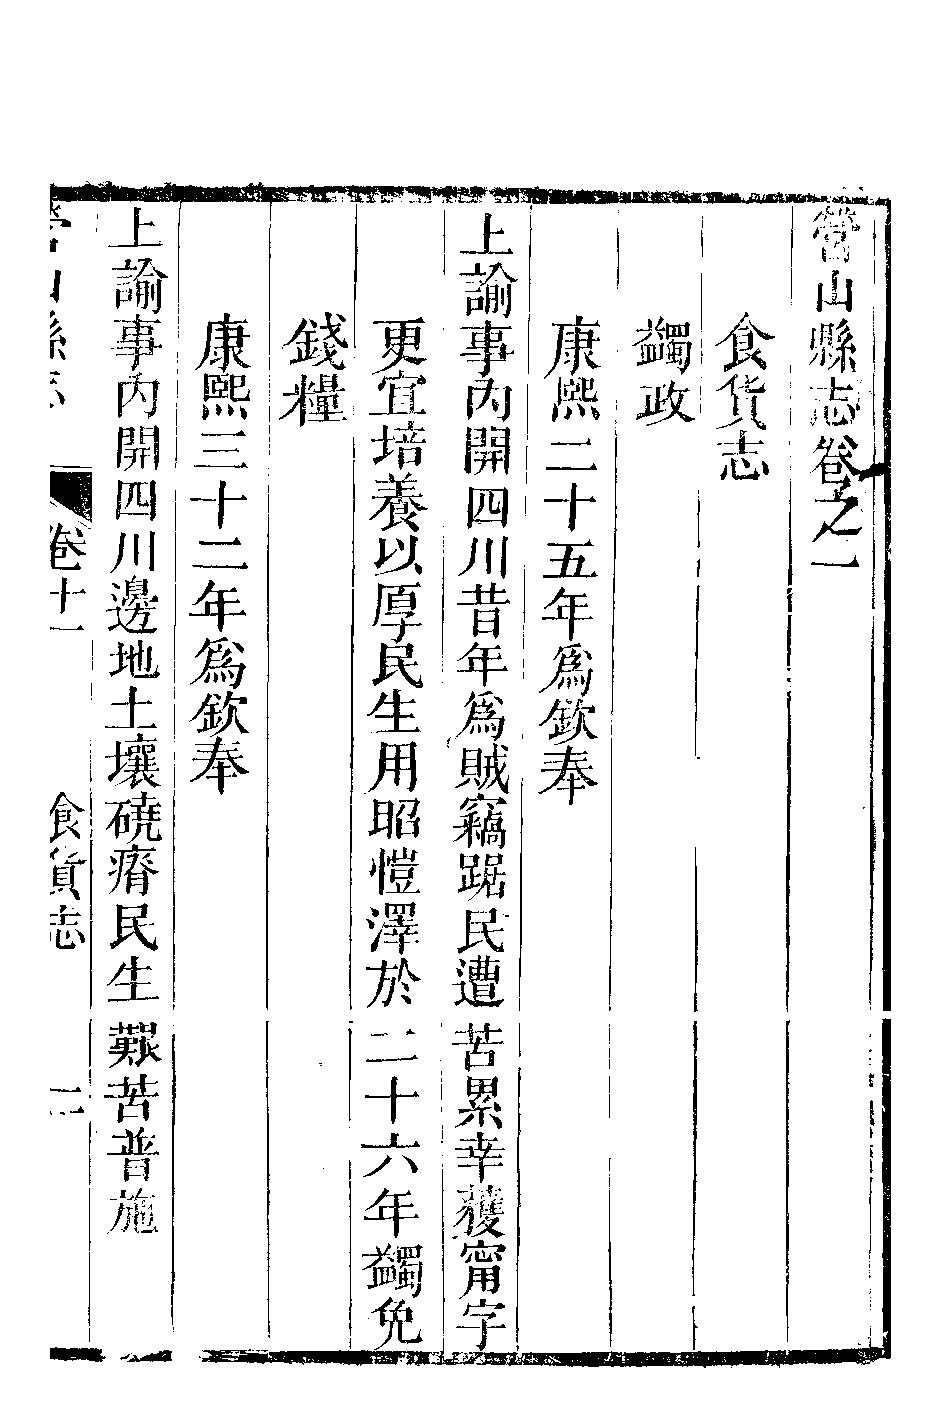 營山縣志卷之一
食貨志
蠲政
康熙二十五年爲欽奉
上諭事內開四川昔年爲賊竊踞民遭苦累幸獲甯字
更宜培養以厚民生用昭愷澤於二十六年蠲免
錢糧
康熙三十二年爲欽奉
上諭事內開四川邊地土壤磽瘠民生艱苦普施
營山縣志
卷十一
食貨志
一